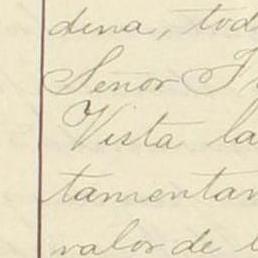 dina, tod
Señor
Vista la
tamentar
valor de l